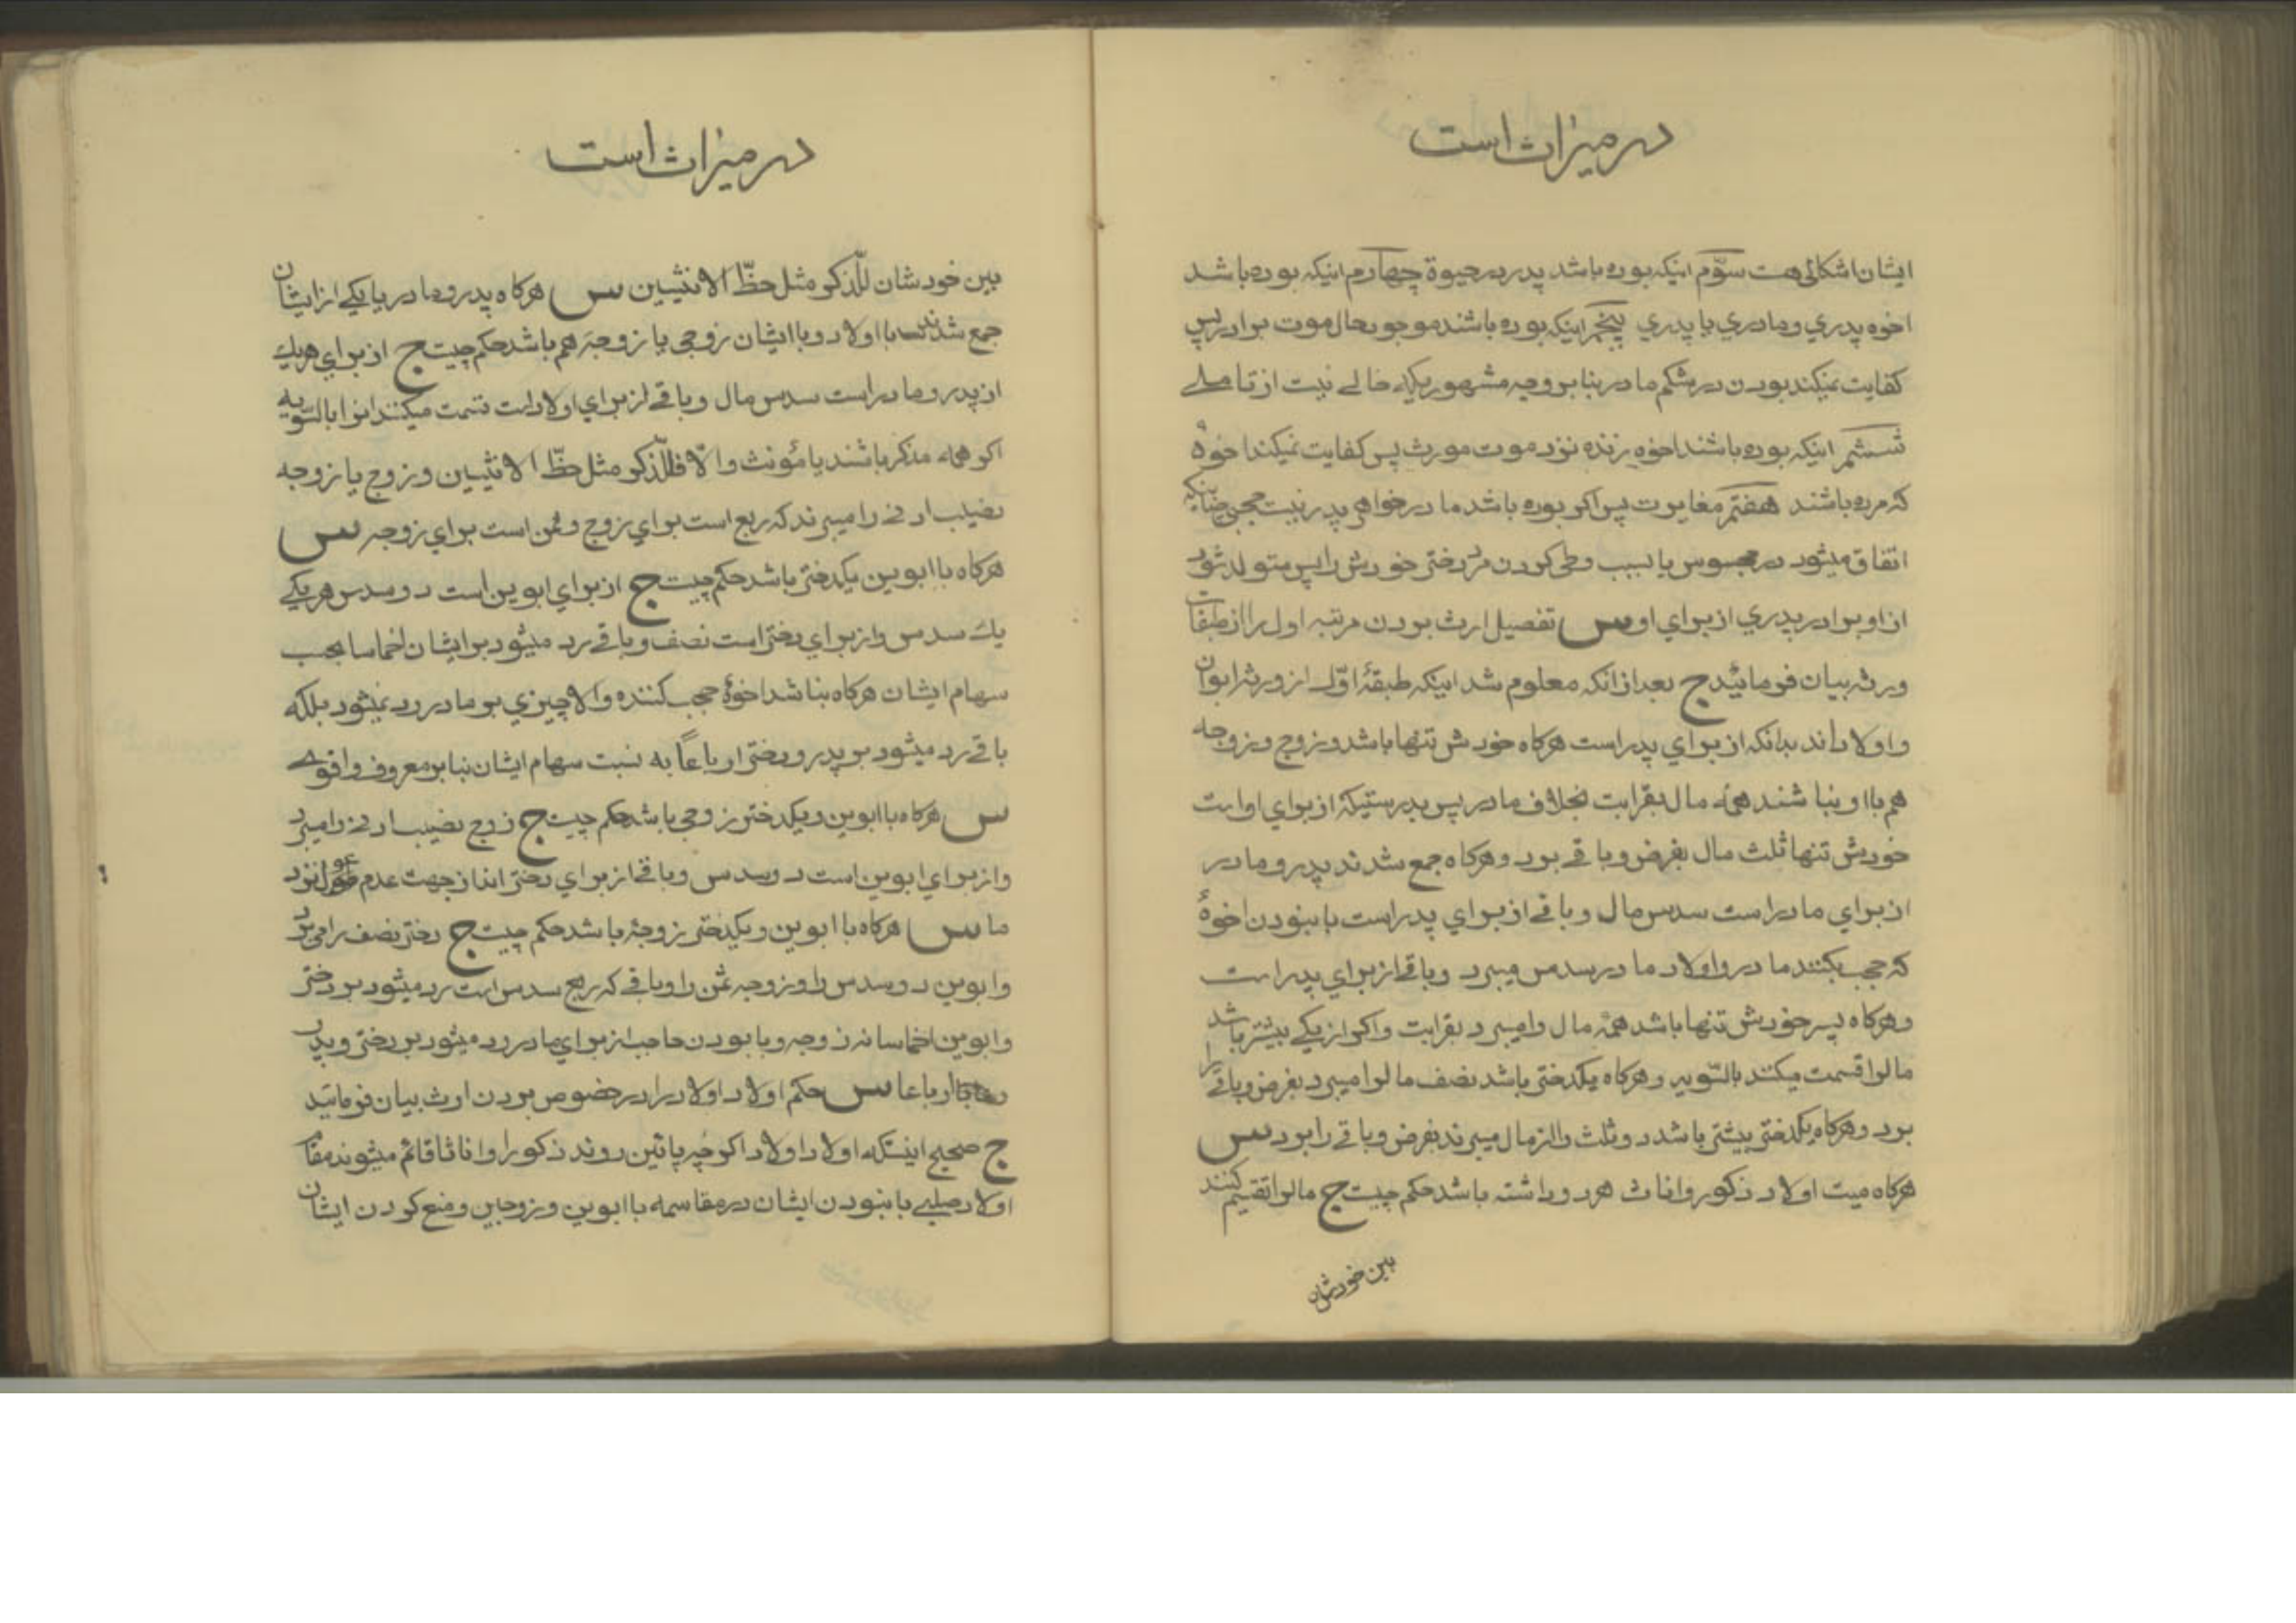 در میراث است
ایشان اشکالی هست سوّم اینکه بوده باشد پدر در حیوة چهارم اینکه بوده باشد
اخوه پدری و مادری یا پدری پنجم اینکه بوده باشند موجود حال موت برادر پس
کفایت نمیکند بودن در شکم مادر بنا بر وجه مشهوریکه خالی نیست از تاملی
ششم اینکه بوده باشند اخوه زنده نزد موت مورث پس کفایت نمیکند اخوهٔ
که مرده باشند هفتم مغایرت پس اکر بوده باشد مادر خواهر پدر نیست حجبی چنانکه
اتفاق میشود در مجوس یا بسبب وطی کردن مرد دختر خودش را پس متولد شود
از او برادر پدری از برای او س تفصیل ارث بودن مرتبه اول را از طبقات
ورثه بیان فرمائید ج بعد از آنکه معلوم شد اینکه طبقهٔ اوّل از ورثه ابوان
و اولاداند بدانکه از برای پدر است هرکاه خودش تنها باشد و زوج و زوجه
هم با او نباشند همهٔ مال بقرابت بخلاف مادر پس بدرستیکه از برای او است
خودش تنها ثلث مال بفرض و باقی برد و هرکاه جمع شدند پدر و مادر
از برای مادر است سدس مال و باقی از برای پدر است با نبودن اخوهٔ
که حجب بکنند مادر و اولاد مادر سدس میبرد و باقی از برای پدر است
و هرکاه پسر خودش تنها باشد همهٔ مال را میبرد بقرابت و اکر از یکی بیشتر باشد
مالرا قسمت میکنند بالسّویه و هرکاه یکدختر باشد نصف مالرا میبرد بفرض و باقی را
برد و هرکاه یکدختر بیشتر باشد دو ثلث را از مال میبرند بفرض و باقی را برد س
هرکاه میت اولاد ذکور و اناث هر دو داشته باشد حکم چیست ج مالرا تقسیم کنند
بین خودشان
در میراث است
بین خودشان للّذکر مثل حظّ الانثیین س هرکاه پدر و مادر یا یکی از ایشان
جمع شدند با اولاد و با ایشان زوجی یا زوجهٔ هم باشد حکم چیست ج از برای هریک
از پدر و مادر است سدس مال و باقی از برای اولاد است قسمت میکنند انرا بالسّویه
اکر همهٔ مذکر باشند یا مؤنث و الّا فللّذکر مثل حظّ الانثیین و زوج یا زوجه
نصیب ادنی را میبرند که ربع است برای زوج و ثمن است برای زوجه س
هرکاه با ابوین یکدختر باشد حکم چیست ج از برای ابوین است دو سدس هر یکی
یک سدس و از برای دختر است نصف و باقی رد میشود بر ایشان اخماسا بحسب
سهام ایشان هرکاه نباشد اخوهٔ حجب کننده و الا چیزی بر مادر رد نمیشود بلکه
باقی رد میشود بر پدر و دختر ارباعاً به نسبت سهام ایشان بنا بر معروف و اقوی
س هرکاه با ابوین و یکدختر زوجی باشد حکم چیست ج زوج نصیب ادنی را میبرد
و از برای ابوین است دو سدس و باقی از برای دختر است از جهت عدم عول نزد
ما س هرکاه با ابوین و یکدختر زوجهٔ باشد حکم چیست ج دختر نصف را میبرد
و ابوین دو سدس را و زوجه ثمن را و باقی که ربع سدس است رد میشود بر دختر
و ابوین اخماسا نه زوجه و با بودن حاجب از برای مادر رد میشود بر دختر و پدر
ارباعا س حکم اولاد اولاد را در خصوص بردن ارث بیان فرمائید
ج صحیح اینستکه اولاد اولاد اکرچه پائین روند ذکورا و اناثا قائم میشوند مقام
اولاد صلبی با نبودن ایشان در مقاسمه با ابوین و زوجین و منع کردن ایشان